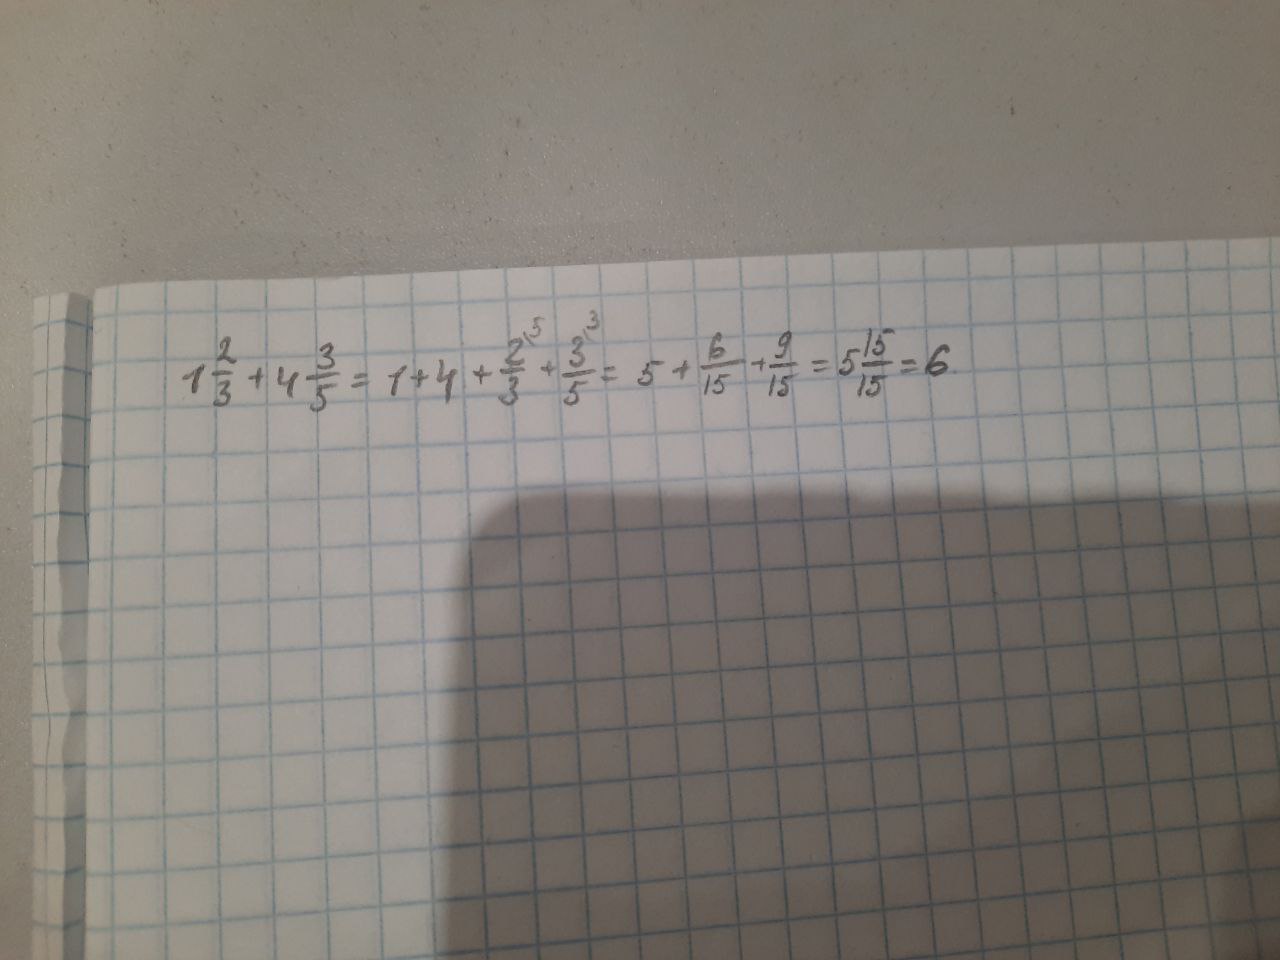 1 2/3 + 4 3/5 = 1 + 4 + 2/3 ^5 + 3/5 ^3 = 5 + 6/15 + 9/15 = 5 15/15 = 6